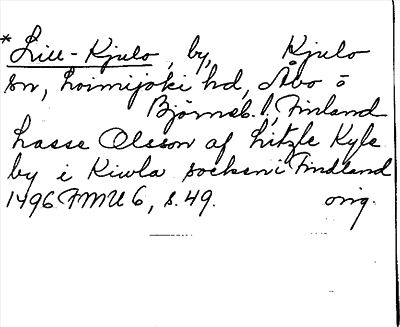 *Lill-Kjulo, by, Kjulo
sn, Loimijoki hd, Åbo o
Björneb. l, Finland
Lasse Olsson af Litzle Kyle
by i Kiwla socken i Findland
1496 FMU 6, s. 49. orig.